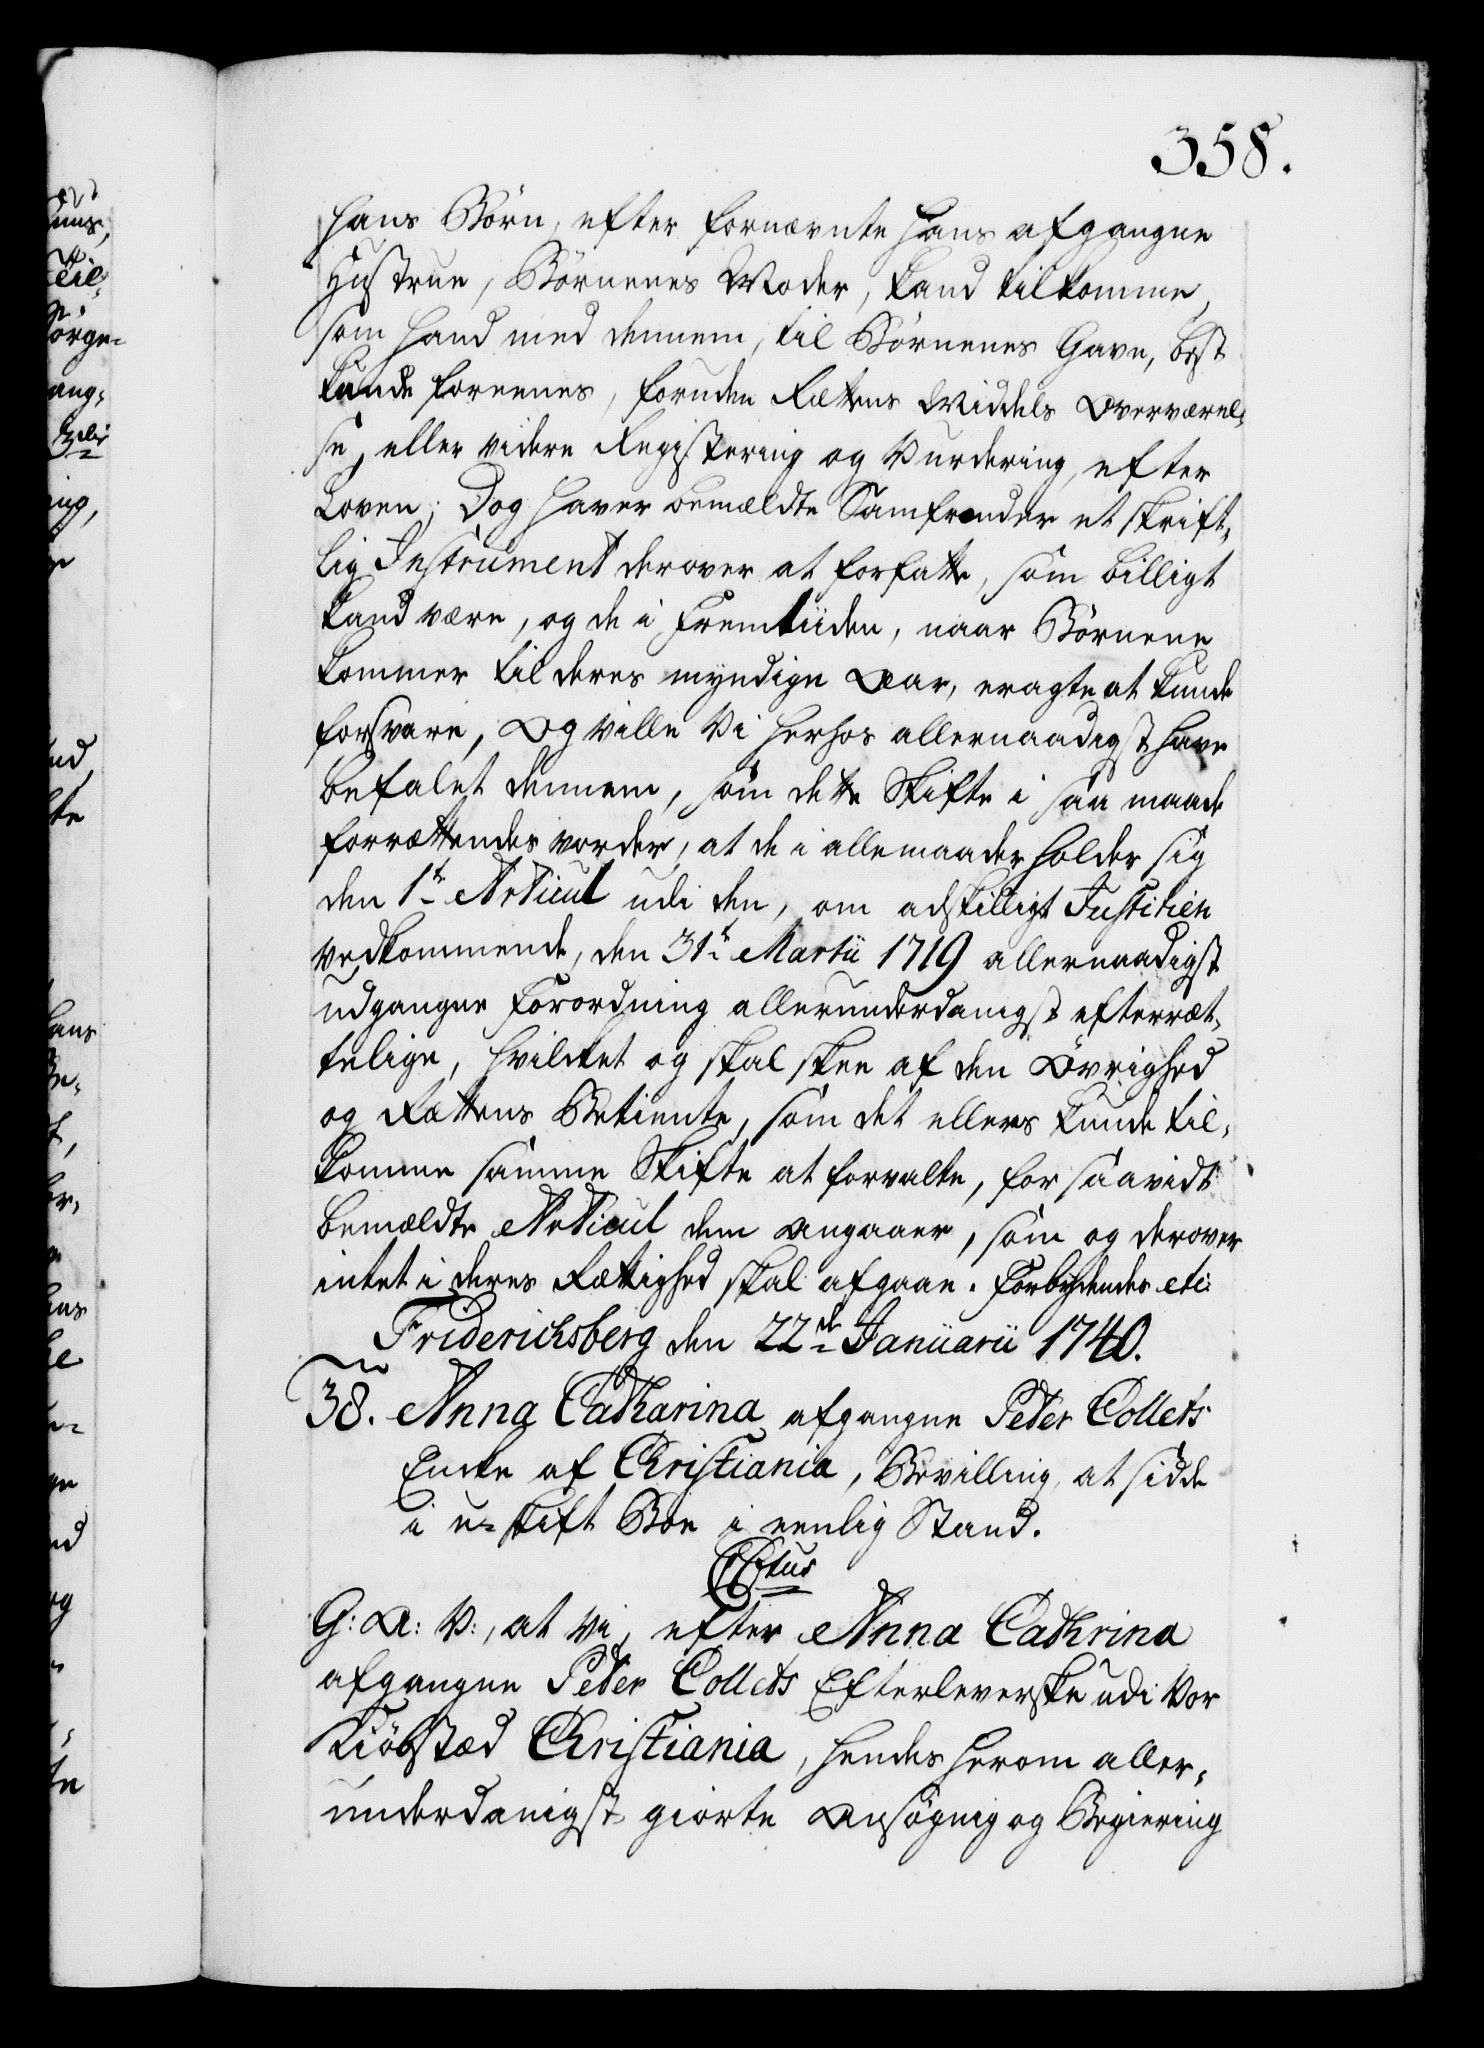 358.
hans Börn, efter fornævnte hans afgangne
Hustrue, Börnenes Moder, kand tilkomme,
som hand med dennem, til Börnenes Gavn, best
kunde foreenes, foruden Rættens Middels Overværel-
se, eller videre Registering og Vurdering, efter
Loven; Dog haver bemældte Samfrender et skrift-
lig Instrument derover at forfatte, som billigt
kand være, og de i Fremtiiden, naar Börnene
kommer til deres myndige Aar, eragte at kunde
forsvare, Og ville Vi herhos allernaadigst have
befalet dennem, som dette Skifte i saa maade
forrættendes vorder, at de i allemaader holder sig
den 1te Articul udi den, om adskilligt Justitien
vedkommende, den 31te Martii 1719 allernaadigst
udgangne Forordning allerunderdanigst efterræt-
telige, hvilcket og skal skee af den Övrighed
og Rættens Betiente, som det ellers kunde til-
komme samme Skifte at forvalte, for saavidt
bemældte Articul dem angaaer, som og derover
intet i deres Rættighed skal afgaae. Forbydendes etc:
Friderichsberg den 22de Januarii 1740.
38. Anna Catharina afgangne Peter Collets
Encke af Christiania, Bevilling, at sidde
i u-skift Boe i eenlig Stand.
CCtus
G: A: V:, at Vi, efter Anna Cathrina
afgangne Peter Collets Efterleverske udi Vor
Kiöbstæd Christiania, hendes herom aller-
underdanigst giorte Ansögnig og Begiering